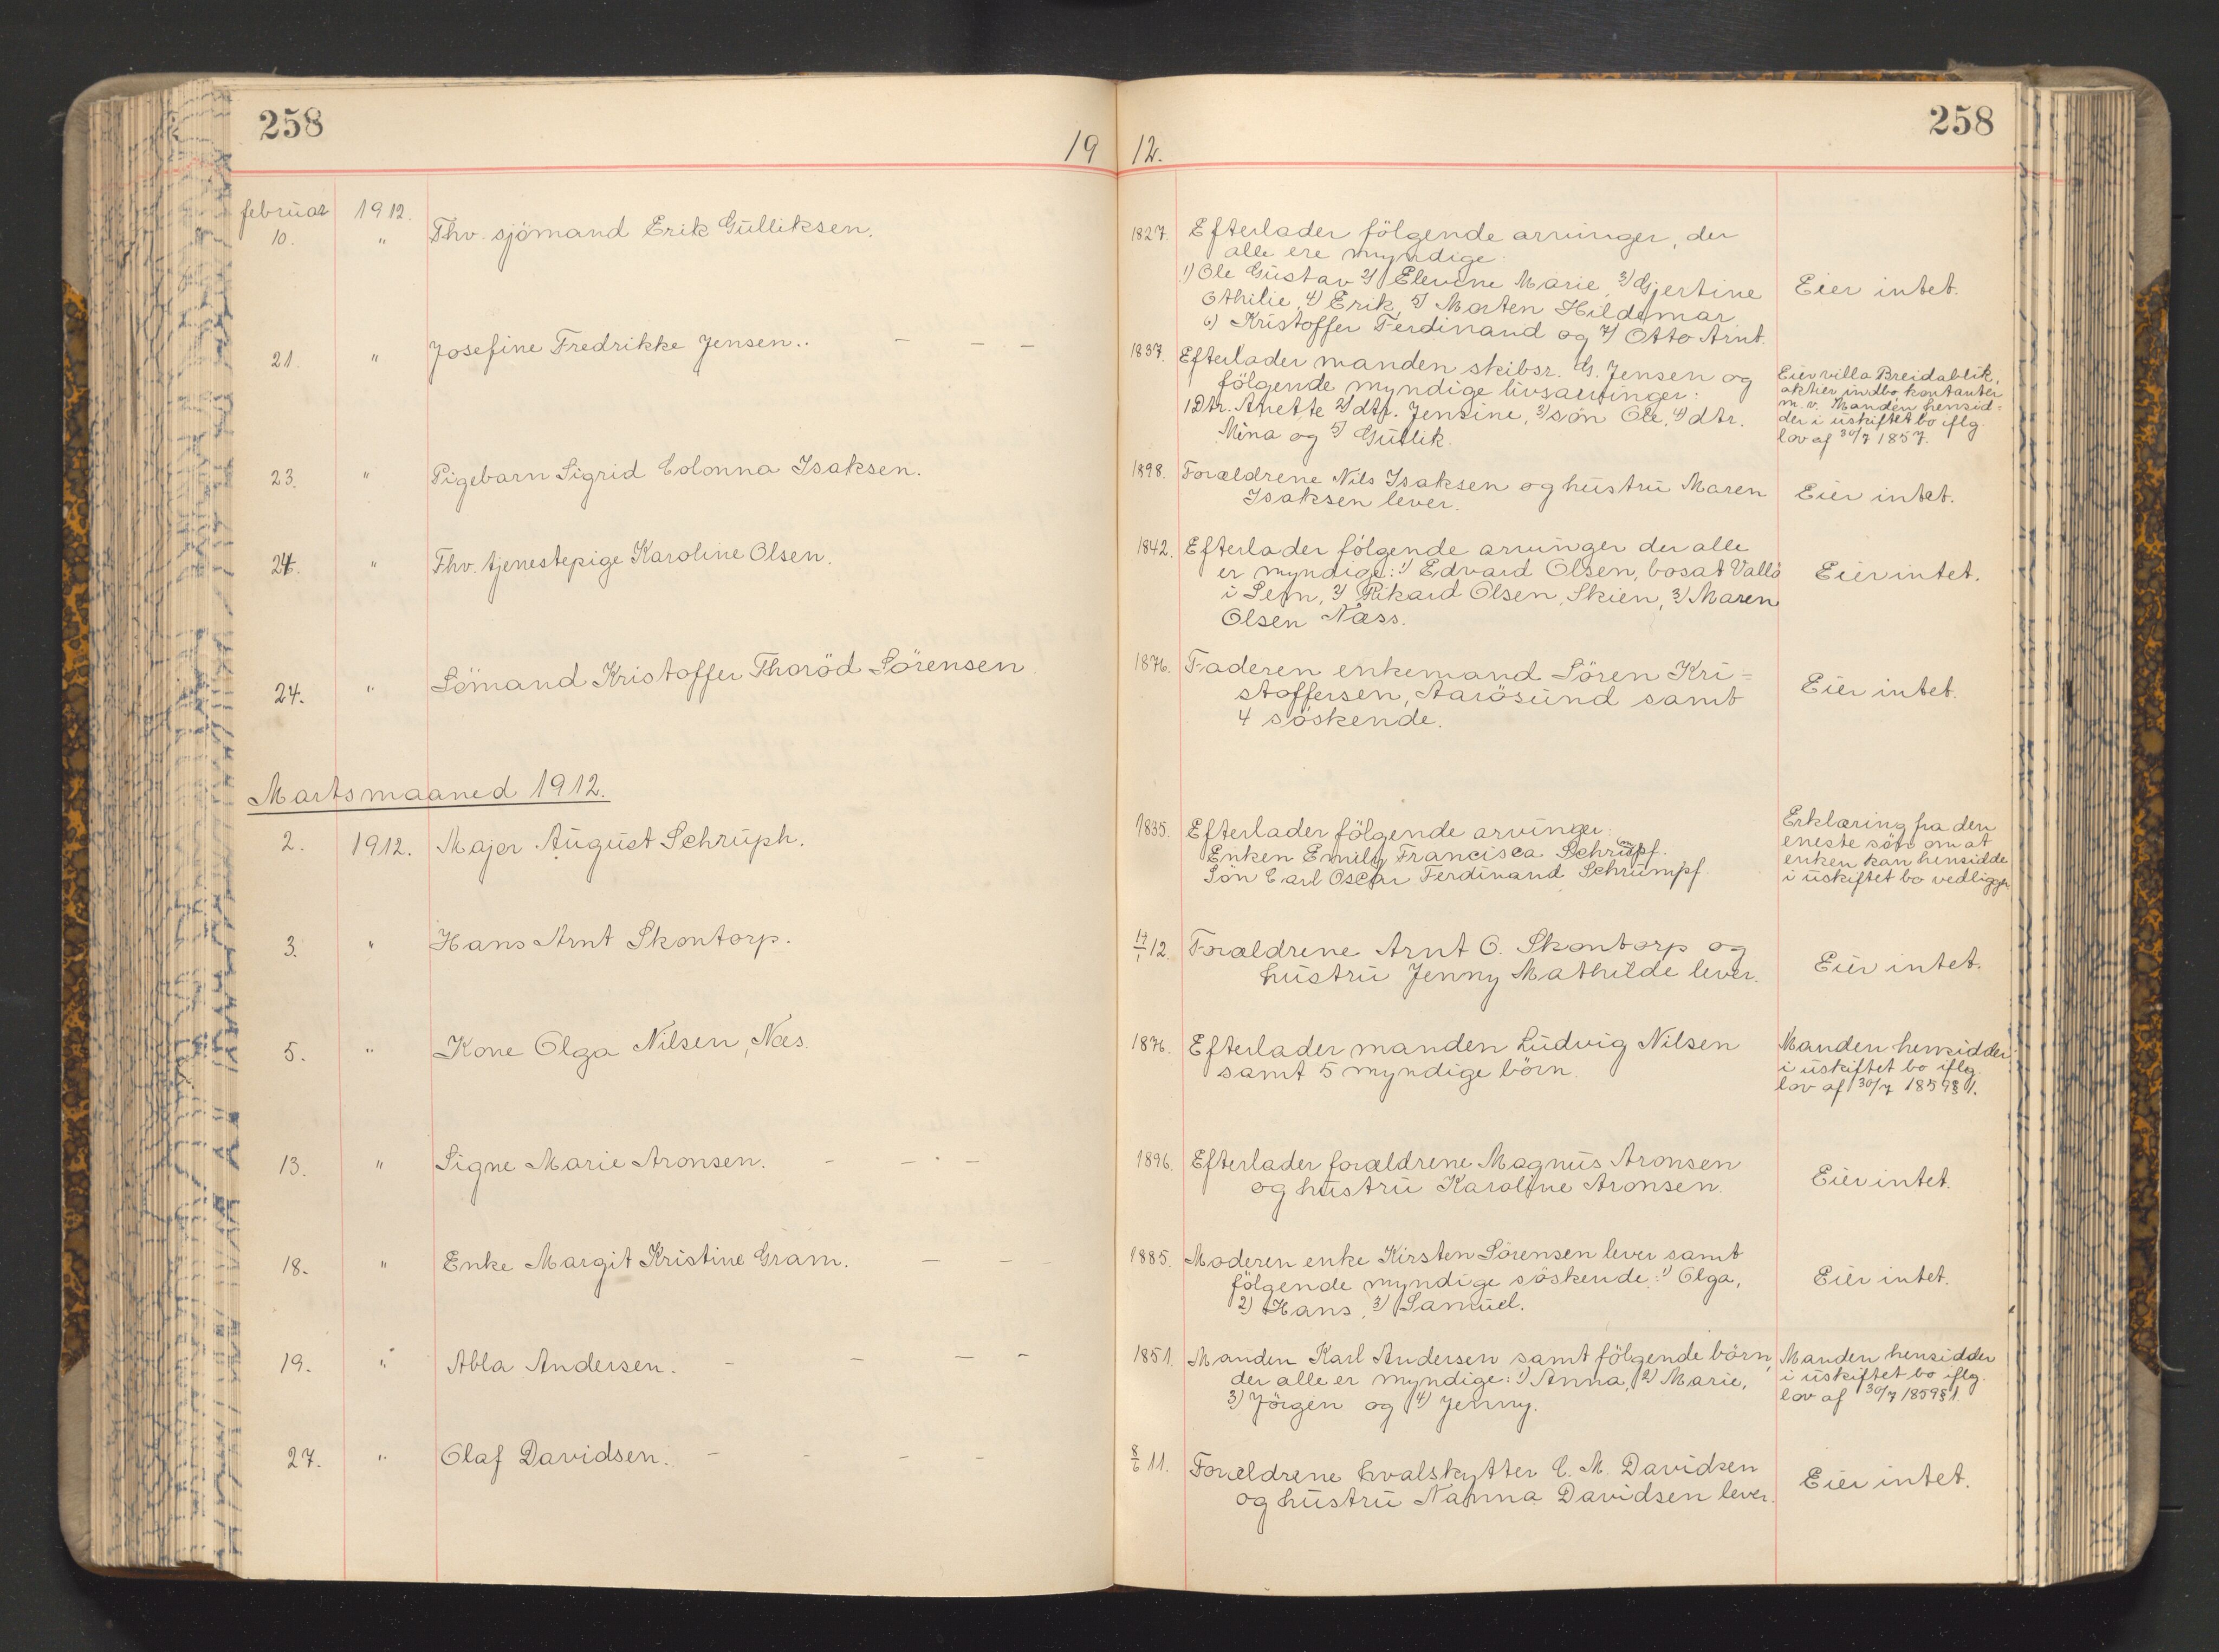 258
19 12.
258
februar 1912.
10. " Fhv. sjömand Erik Gulliksen.
1827. Efterlader fölgende arvinger, der
alle ere myndige:
1) Ole Gustav 2) Elevine Marie, 3) Gjertine
Othilie, 4) Erik, 5) Morten Hildemar
6) Kristoffer Ferdinand og 7) Otto Arnt.
Eier intet.
21. " Josefine Fredrikke Jensen.. — — —
1837. Efterlader manden skibsr. G. Jensen og
fölgende myndige livsarvinger:
1 Dtr. Anette 2) dtr. Jensine, 3) sön Ole, 4) dtr.
Mina og 5) Gullik.
Eier villa Breidablik,
aktier, indbo, kontanter
m. v. Manden hensid=
der i uskiftet bo iflg.
lov af 30/7 1857.
23. " Pigebarn Sigrid Colonna Isaksen.
1898. Forældrene Nils Isaksen og hustru Maren
Isaksen lever.
Eier intet.
24. " Fhv. tjenestepige Karoline Olsen.
1842. Efterlader fölgende arvinger der alle
er myndige: 1) Edvard Olsen, bosat Vallö
i Sem, 2) Rikard Olsen, Skien, 3) Maren
Olsen Næss.
Eier intet.
24. " Sömand Kristoffer Thoröd Sörensen
1876. Faderen enkemand Sören Kri=
stoffersen, Aarösund samt
4 söskende.
Eier intet.
Martsmaaned 1912.
2. 1912. Major August Schruph.
1835. Efterlader fölgende arvinger:
Enken Emily Francisca Schrumpf.
Sön Carl Oscar Ferdinand Schrumpf.
Erklæring fra den
eneste sön om at
enken kan hensidde
i uskiftet bo vedligger
3. " Hans Arnt Skontorp.
17/1 12. Forældrene Arnt O. Skontorp og
hustru Jenny Mathilde lever.
Eier intet.
5. " Kone Olga Nilsen, Næs.
1876. Efterlader manden Ludvig Nilsen
samt 5 myndige börn.
Manden hensidder
i uskiftet bo iflg.
lov af 30/7 1859 § 1.
13. " Signe Marie Aronsen. — — . —
1896. Efterlader forældrene Magnus Aronsen
og hustru Karoline Aronsen.
Eier intet.
18. " Enke Margit Kristine Gram. — — -
1885. Moderen enke Kirsten Sörensen lever samt
fölgende myndige söskende: 1) Olga,
2) Hans, 3) Samuel.
Eier intet.
19. " Abla Andersen. — — — -
1851. Manden Karl Andersen samt fölgende börn,
der alle er myndige: 1) Anna, 2) Marie,
3) Jörgen og 4) Jenny.
Manden hensidder
i uskiftet bo iflg.
lov af 30/7 1859 § 1.
27. " Olaf Davidsen. — - — —
8/6 11. Forældrene hvalskytter C. M. Davidsen
og hustru Nanna Davidsen lever.
Eier intet.